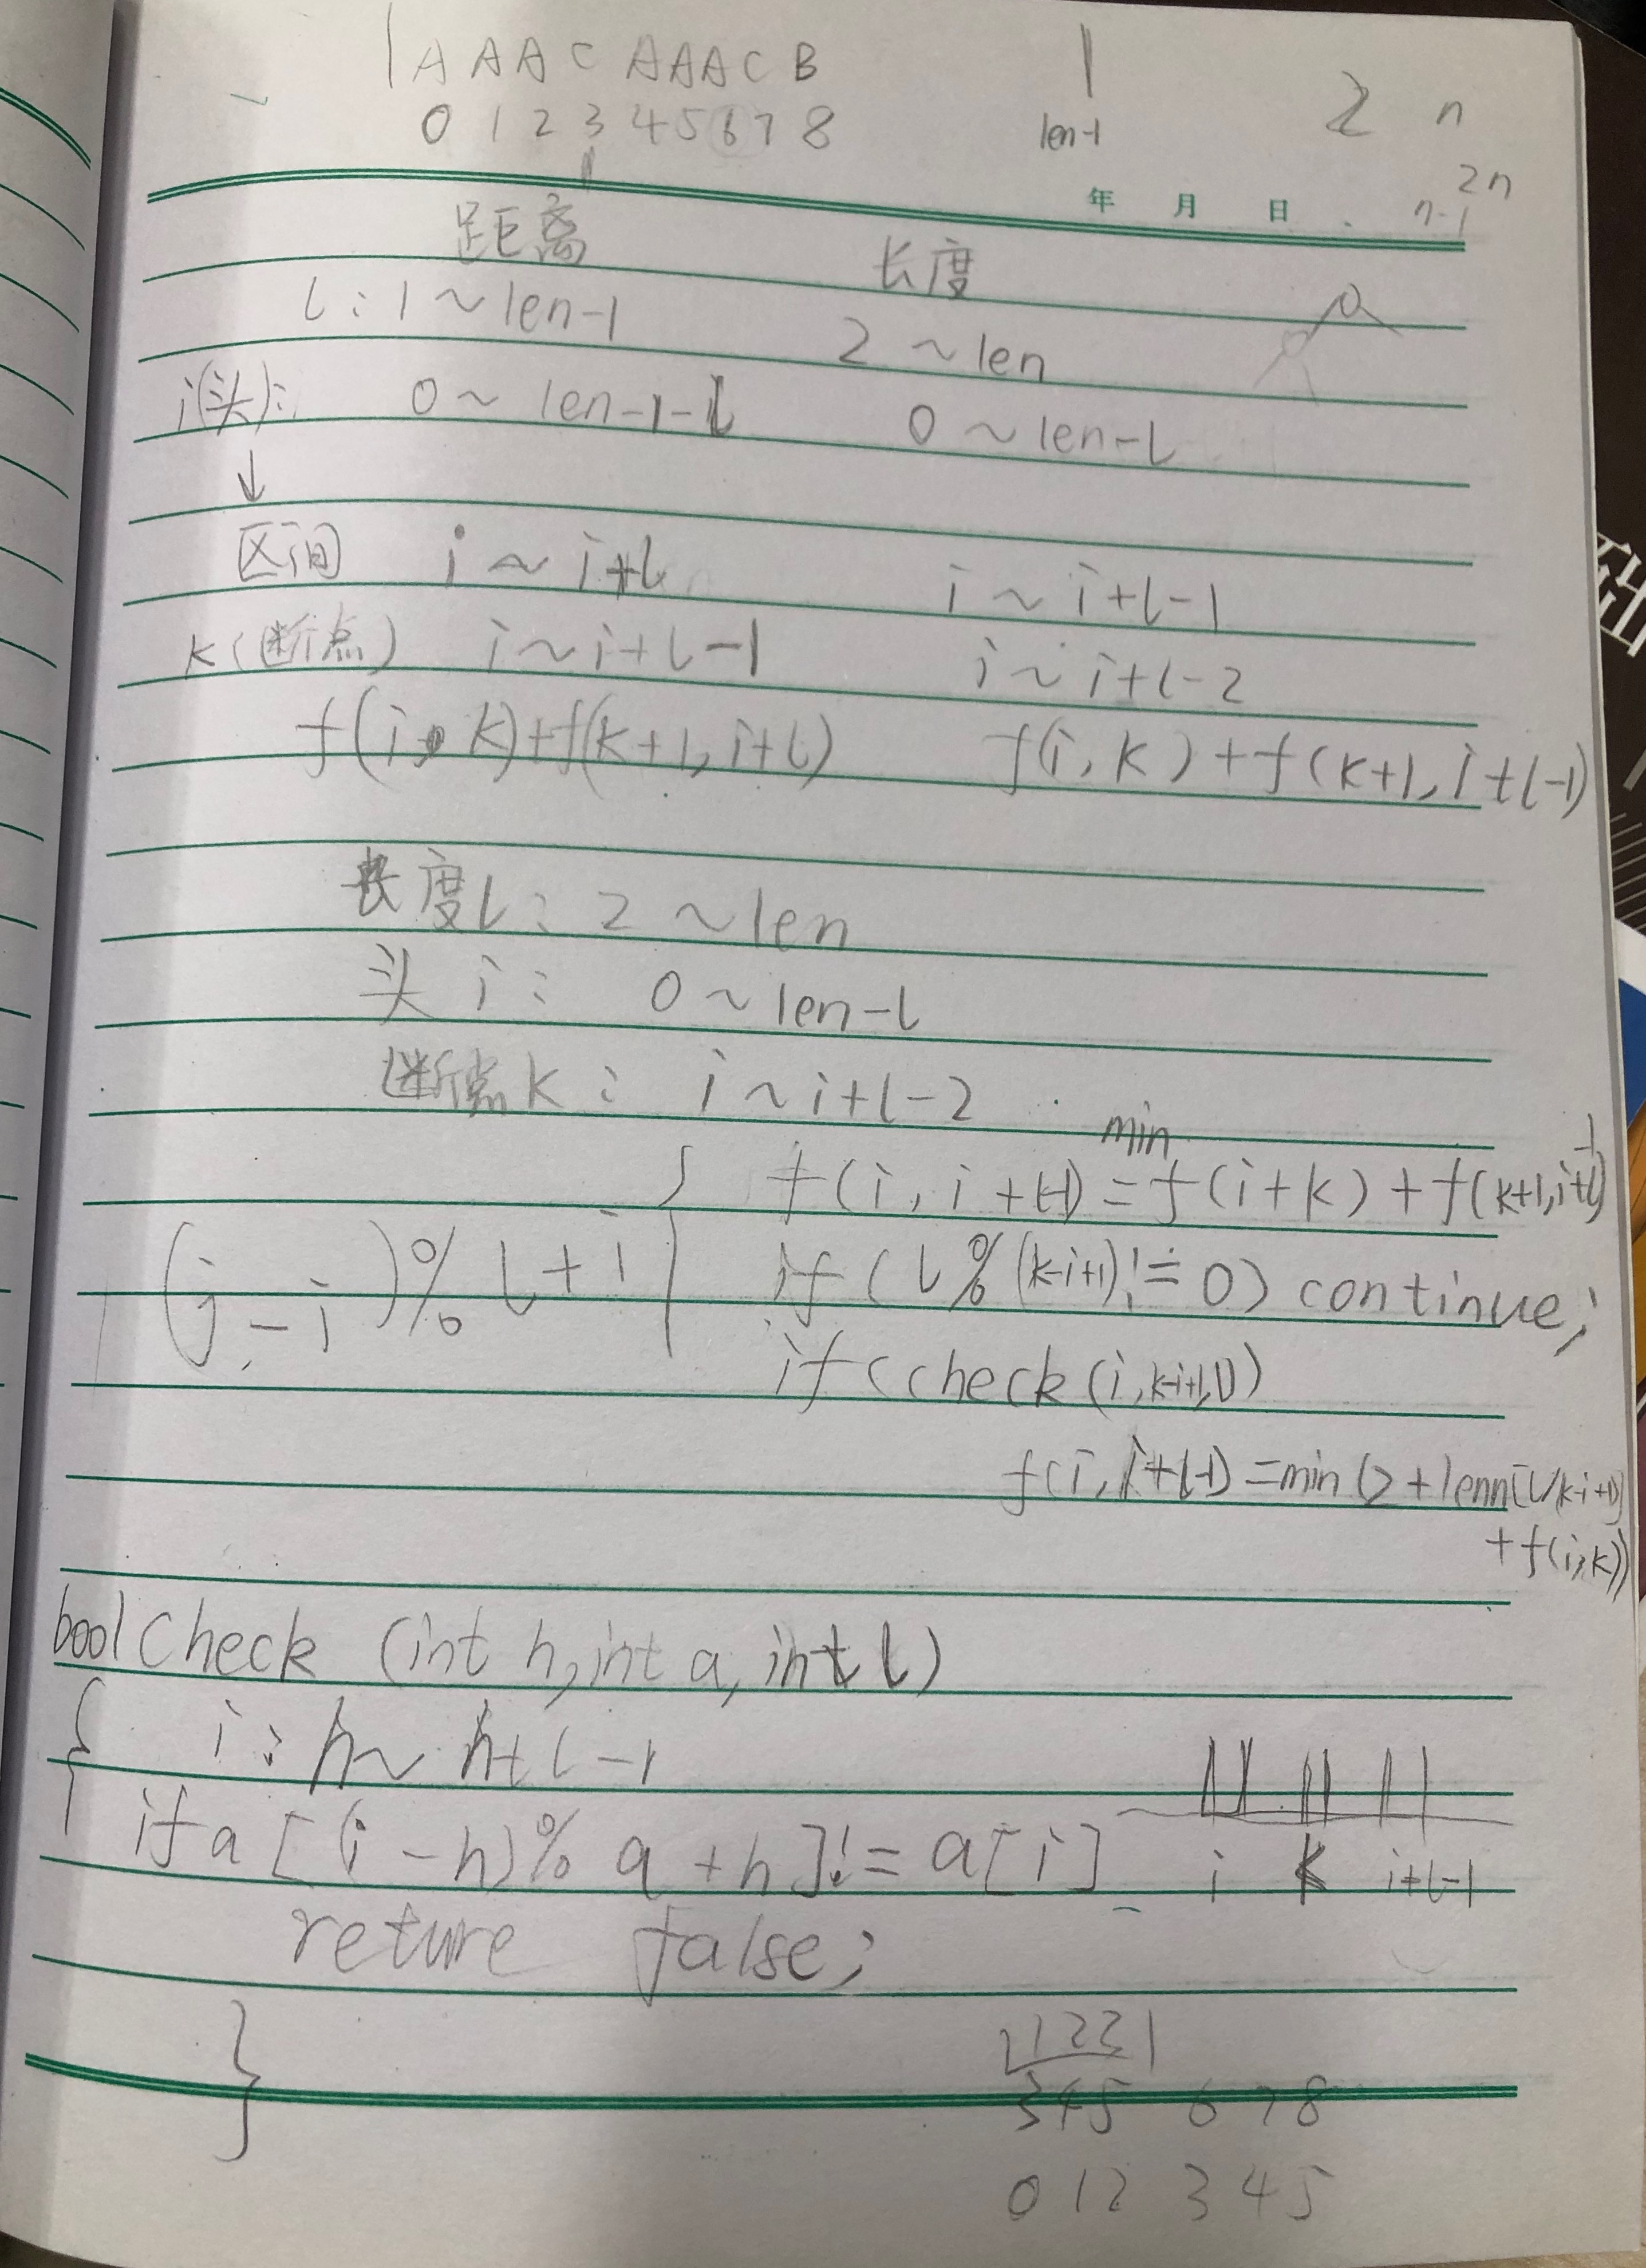 A A A C A A A C B
0 1 2 3 4 5 6 7 8
len-1
2 n
2n
n-1
年 月 日
距离 长度
l: 1 ~ len-1 2 ~ len
i(头): 0 ~ len-1-l 0 ~ len-l
↓
区间 i ~ i+l i ~ i+l-1
k(断点) i ~ i+l-1 i ~ i+l-2
f(i, k)+f(k+1, i+l) f(i, k)+f(k+1, i+l-1)
长度l: 2 ~ len
头 i: 0 ~ len-l
断点k: i ~ i+l-2
min
f(i, i+l-1) = f(i+k) + f(k+1, i+l-1)
(j-i)%l+i
if (l%(k-i+1)!=0) continue;
if (check(i, k-i+1, l))
f(i, i+l-1) = min(2+lenn[l/(k-i+1)]
+f(i,k))
bool check (int h, int a, int l)
{ i: h ~ h+l-1
if a[(i-h)%a+h]!=a[i]
i k i+l-1
reture false;
}
3 4 5 6 7 8
0 1 2 3 4 5